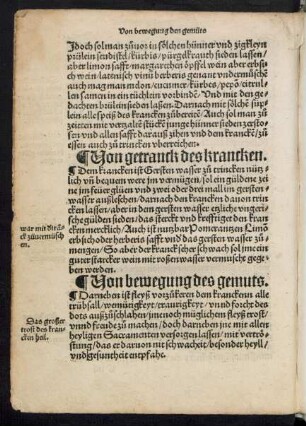 Von bewegung des gemüts
Jdoch sol man zuuor in solchen hünner vnd zigkleyn
prülein seudistel / kürbis / pürgelkrauch sieden lassen /
aber limon safft / margarethen öpffel wein aber erbsich
wein lateinisch vinū berberis genant vndermüsche
auch mag man melon / cucumer / kürbes / citrul
len samen in ein tüchlein vorbindē / vnd Mit den ge
dachten brülin sieden lassen. Darnach mit solche süp
lein alle speiß des krancken zübereitē / Auch sol man zů
zeiten mit stücke junge hünner sieden
vnd den allen safft daraus zihen vnd dem krancke / zů
essen auch zů trincken vberreichen
Von getranck des krancken.
Dem krancken ist Gersten wasser zů trincken nütz
lich vñ bequem were er vermögen / sol ein güldene zei
ne im feuer glüen vnd zwei oder drei mall im gersten
wasser ableschen / darnach den krancken dauon trin
cken lassen / aber in dem gersten wasser etzliche vngeri
sche gülden sieden / das sterckt vnd krefftiget den kran
cken mercklich / Auch ist nutzbar Pomerantzen Limō
erbsich oder herberis safft vnd das gersten wasser zů
mengen / So aber der krancke seher schwach sol im ein
gutter starcker wein mit rosen wasser vermüscht ge
geben werden.
war mit die trā
ck zůuermüsch
en.
Von bewegung des gemuts.
Darneben ist fleyß vorzükeren dem kranckenn alle
trübsall / wemüngkeyt / traurigkeyt / vnd forcht des
dots außzüschlahen / jme noch müglichem fleyß trost /
vnd freude zů machen / doch darneben jne mit allen
heyligen Sacramenten versorgen lassen / mit vertrö
stung / das er daruon nit schwacheit / besonder heyll /
vnd gesuntheit entpfahe.
Das großer
trost des kran
cken heil.